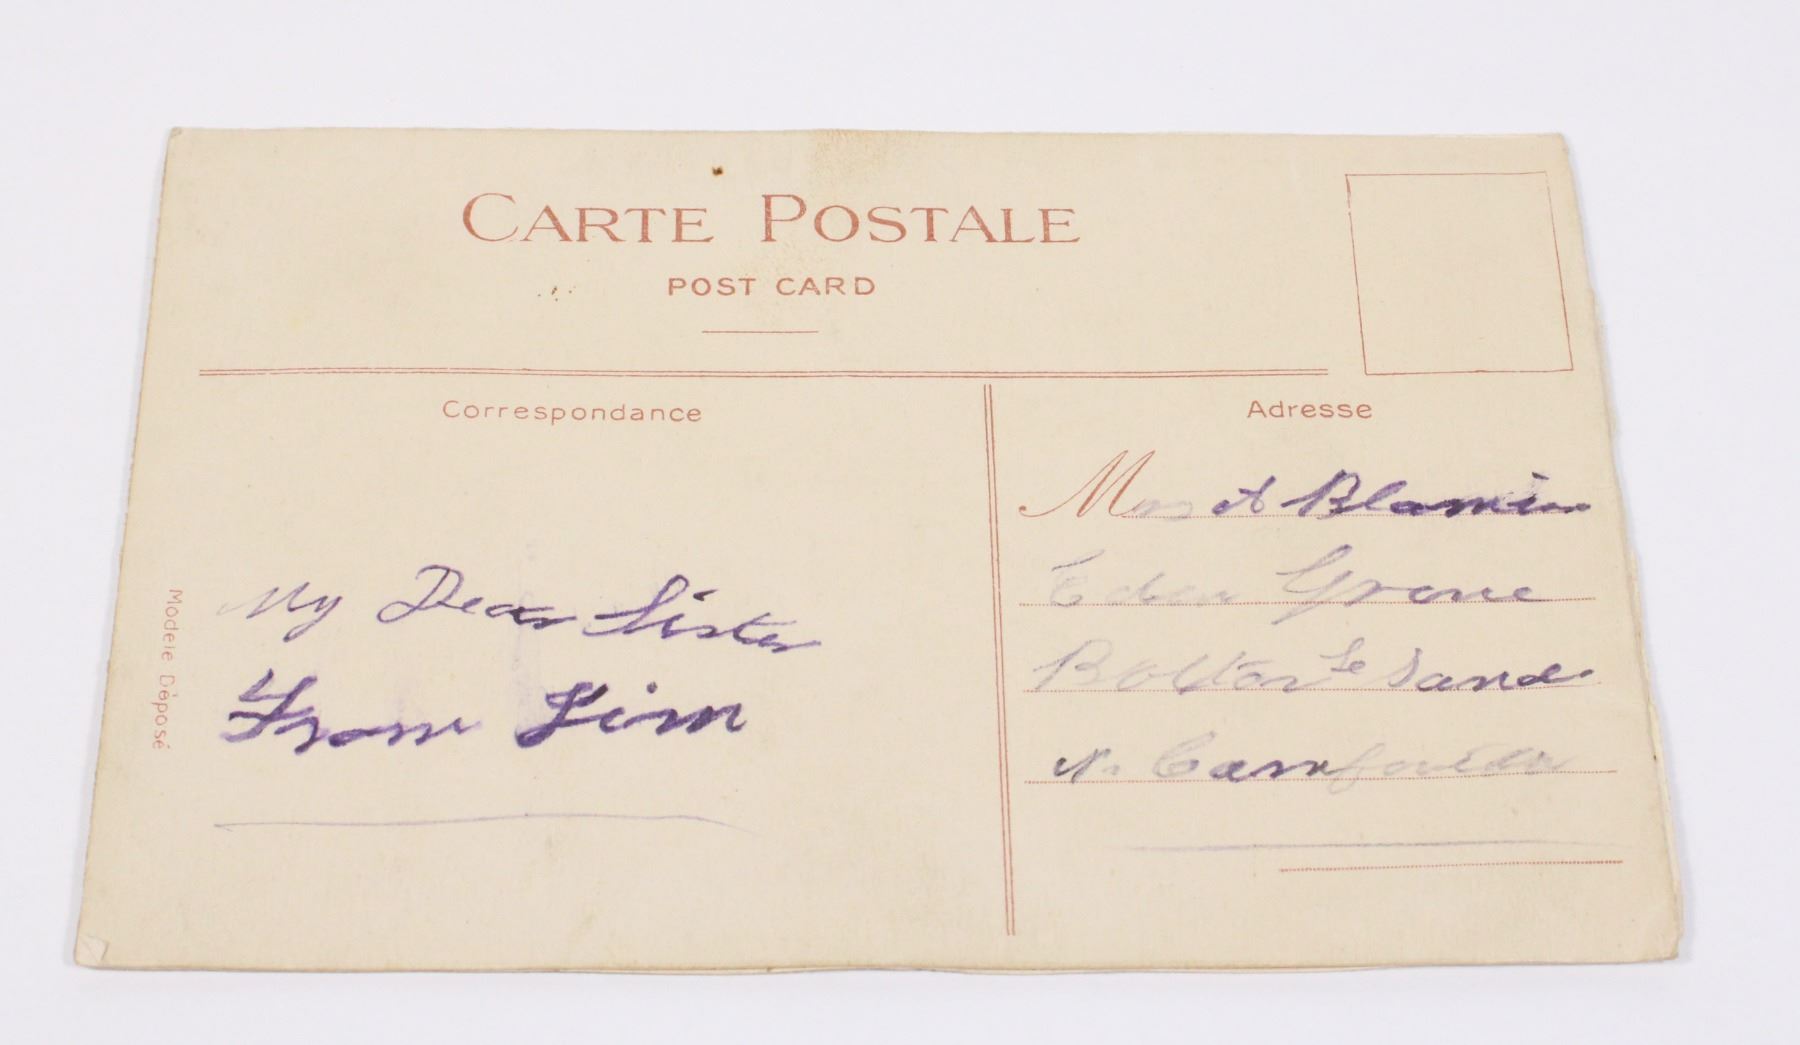 CARTE POSTALE
POST CARD
Correspondance
My Dear Sister
From Jim
Modele Déposé
Adresse
Mrs A
Grove
Bolton le Sands
N. Carnforth